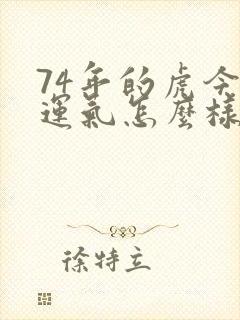 74年的虎今
運氣怎麼樣
徐特立